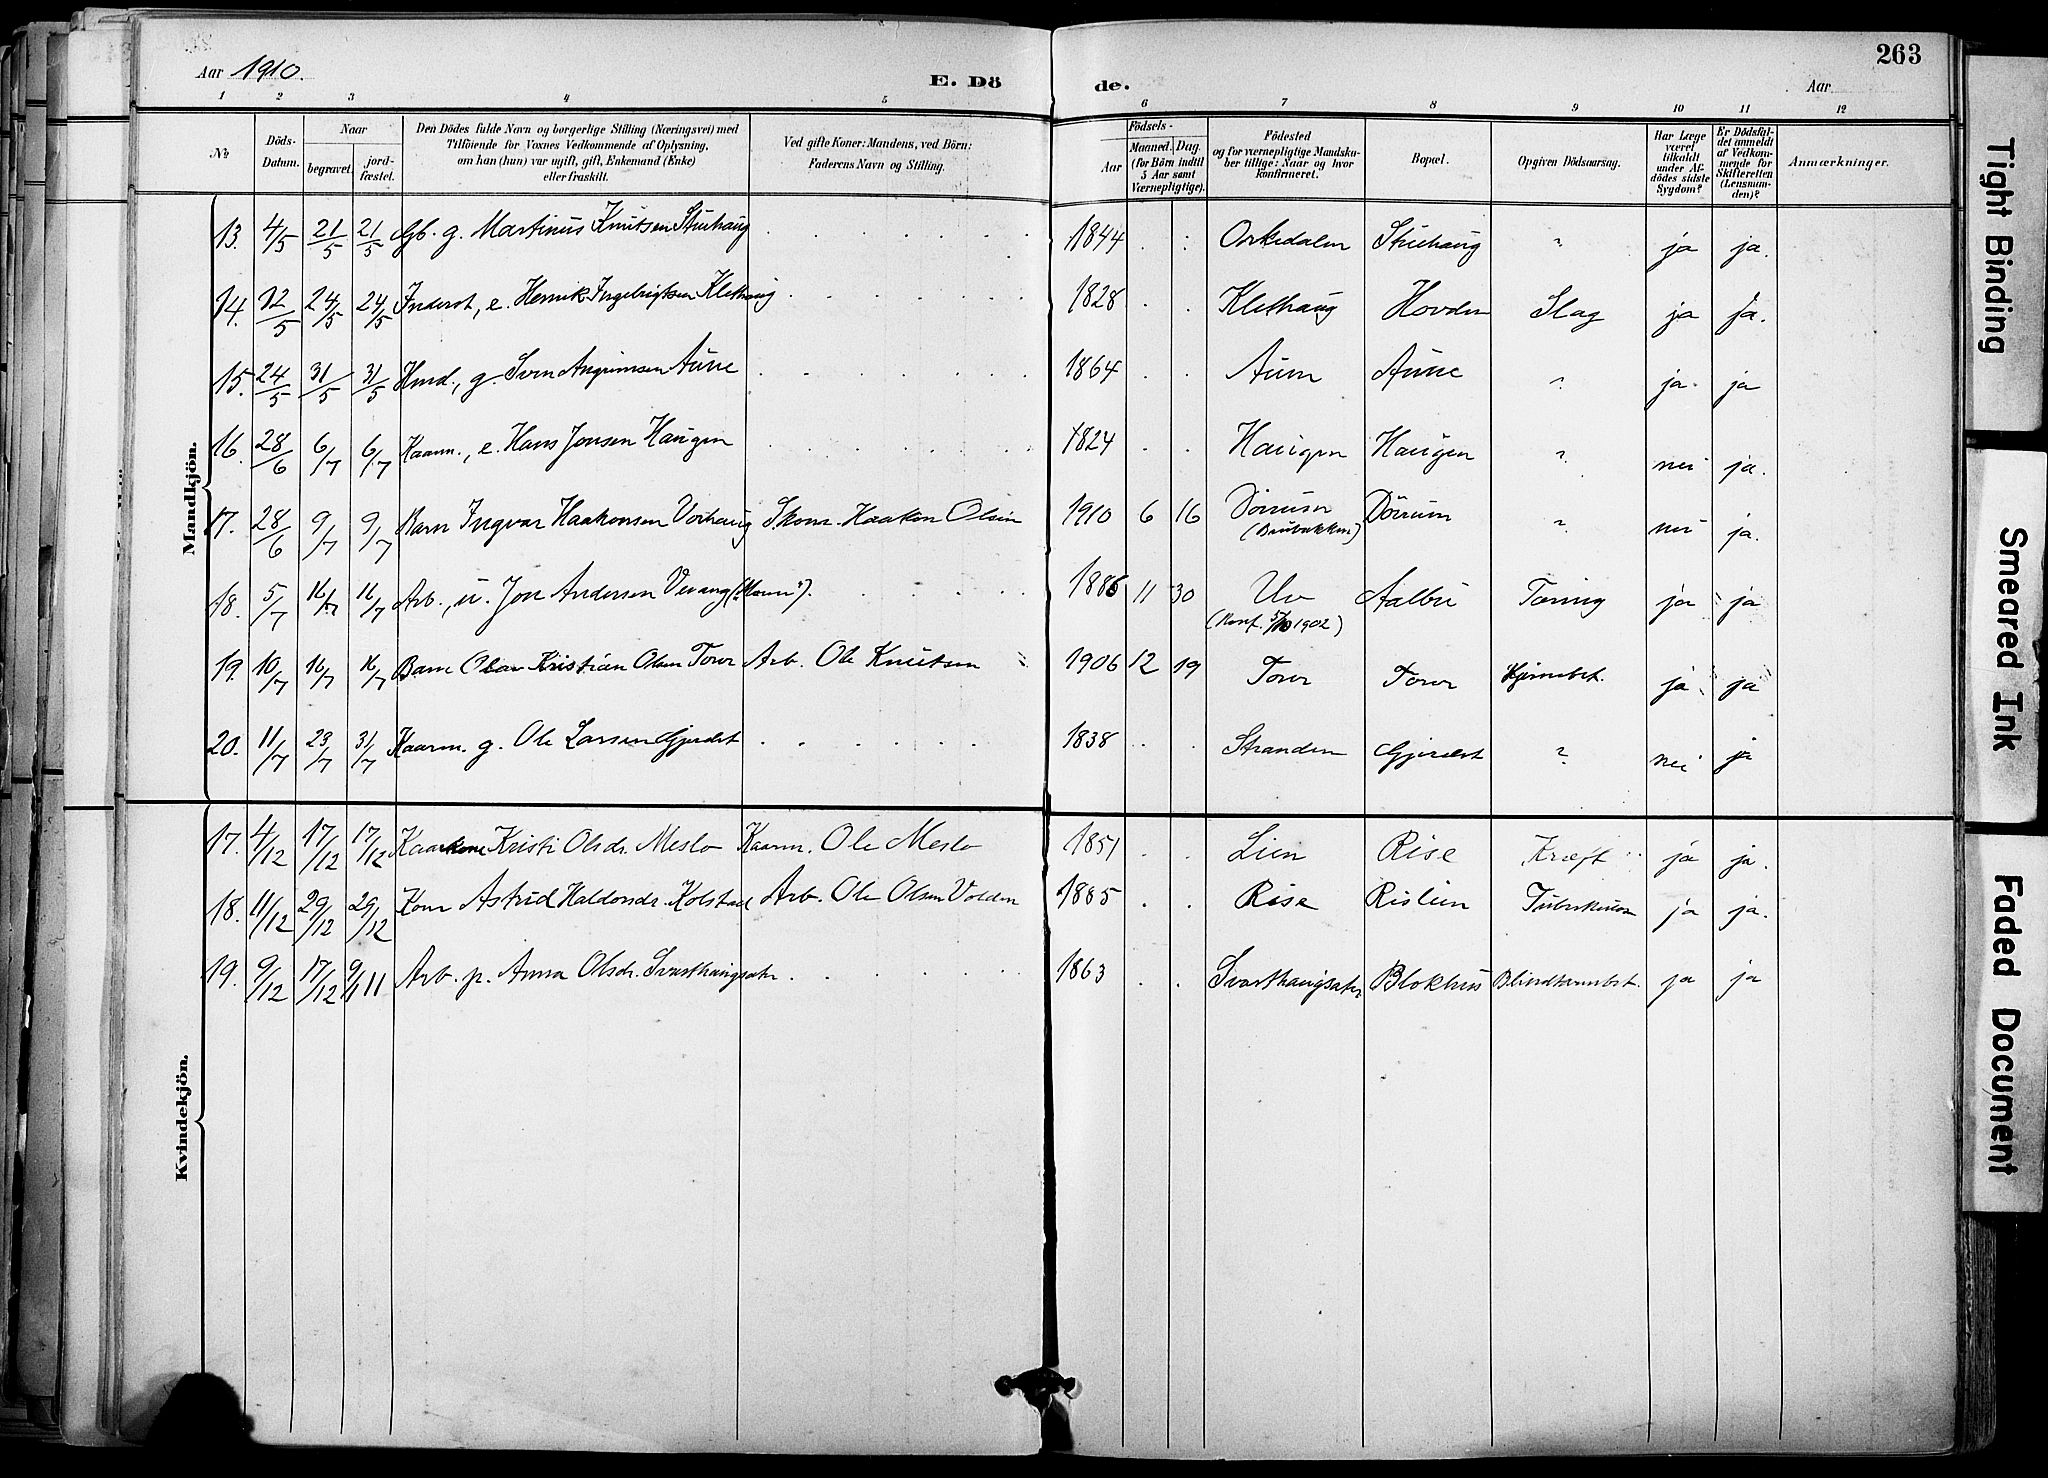 Aar 1910.
E. Dö
de.
Aar
263
1 2 3 4 5 6 7 8 9 10 11 12
№
Döds-
Datum.
Naar
begravet.
jord-
fæstet.
Den Dödes fulde Navn og borgerlige Stilling (Næringsvei) med
Tilföiende for Voxnes Vedkommende af Oplysning,
om han (hun) var ugift, gift, Enkemand (Enke)
eller fraskilt.
Ved gifte Koner: Mandens, ved Börn:
Faderens Navn og Stilling.
Födsels-
Aar
Maaned. Dag.
(for Börn indtil
5 Aar samt
Værnepligtige).
Födested
og for værnepligtige Mandska-
ber tillige: Naar og hvor
konfirmeret.
Bopæl.
Opgiven Dödsaarsag.
Har Læge
været
tilkaldt
under Af-
dödes sidste
Sygdom?
Er Dödsfal-
det anmeldt
af Vedkom-
mende for
Skifteretten
(Lensman-
den)?
Anmærkninger.
Mandkjön.
13. 4/5 21/5 21/5 Gb. g. Martinus Knutsen Stuehaug 1844 Orkedalen Stuehaug " ja ja.
14. 12/5 24/5 24/5 Inderst, e. Henrik Ingebrigtsen Klethaug 1828 Klethaug Hovden Slag ja ja.
15. 24/5 31/5 31/5 Hmd., g. Sven Arngrimsen Aune 1864 Aune Aune " ja ja
16. 28/6 6/7 6/7 Kaarm., e. Hans Jonsen Haugen 1824 Haugen Haugen " nei ja.
17. 28/6 9/7 9/7 Barn Ingvar Haakonsen Vorhaug Skom. Haakon Olsen 1910 6 16 Dörrum Dörrum " nei ja.
(Brubakken)
18. 5/7 16/7 16/7 Arb., u. Jon Andersen Vevang ("Moen"). 1886 11 30 Uv Aalbu Tæring ja ja
(Konf. 5/10 1902)
19. 10/7 16/7 16/7 Barn Olav Kristian Olsen Torve Arb. Ole Knutsen 1906 12 19 Torve Torve Hjernebet. ja ja
20. 11/7 23/7 31/7 Kaarm. g. Ole Larsen Gjerdet 1838 Stranden Gjerdet " nei ja
Kvindekjön.
17. 4/12 17/12 17/12 Kaarkone Kristi Olsdr. Meslo Kaarm. Ole Meslo 1851 Lien Rise Kræft ja ja.
18. 11/12 29/12 29/12 Kone Astrid Haldorsdr. Kolstad Arb. Ole Olsen Volden 1885 Rise Rislien Tuberkulose ja ja.
19. 9/12 17/12 9/1 11 Arb. p. Anna Olsdr. Svarthaugsæter 1863 Svarthaugsæter Blokhus Blindtarmbet. ja ja
Tight Binding
Smeared Ink
Faded Document